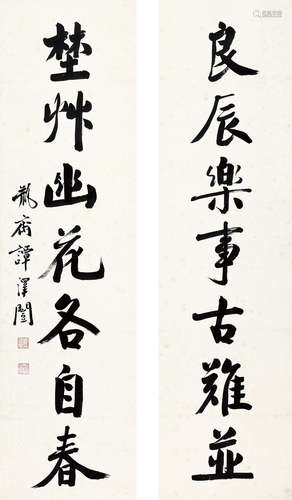 良辰樂事古難並
埜艸幽花各自春
瓶齋譚澤闓